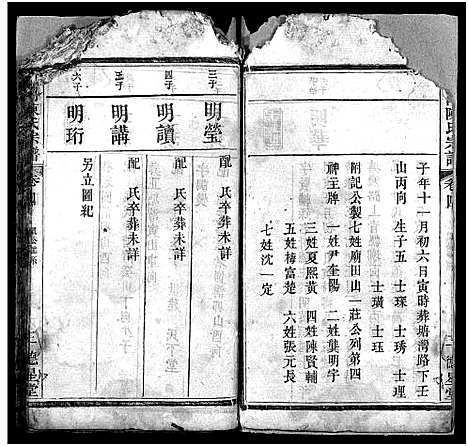 陳氏宗譜
卷四
德星堂
子年十一月初六日寅時葬塘灣路下壬
山丙向 生子五 士琛 士琇 士理
士璜 士珏
附記公製七姓廟田山一莊公列第四
神主牌 一姓尹奎陽 二姓龔明宇
三姓夏熙黃 四姓陳賢輔
五姓梅富楚 六姓張元長
七姓沈一定
三子
明瑩
配 氏卒葬未詳
四子
明讀
配 氏卒葬未詳
五子
明講
配 氏卒葬未詳
六子
明珩
另立圖紀
陳氏宗譜
卷四
德星堂